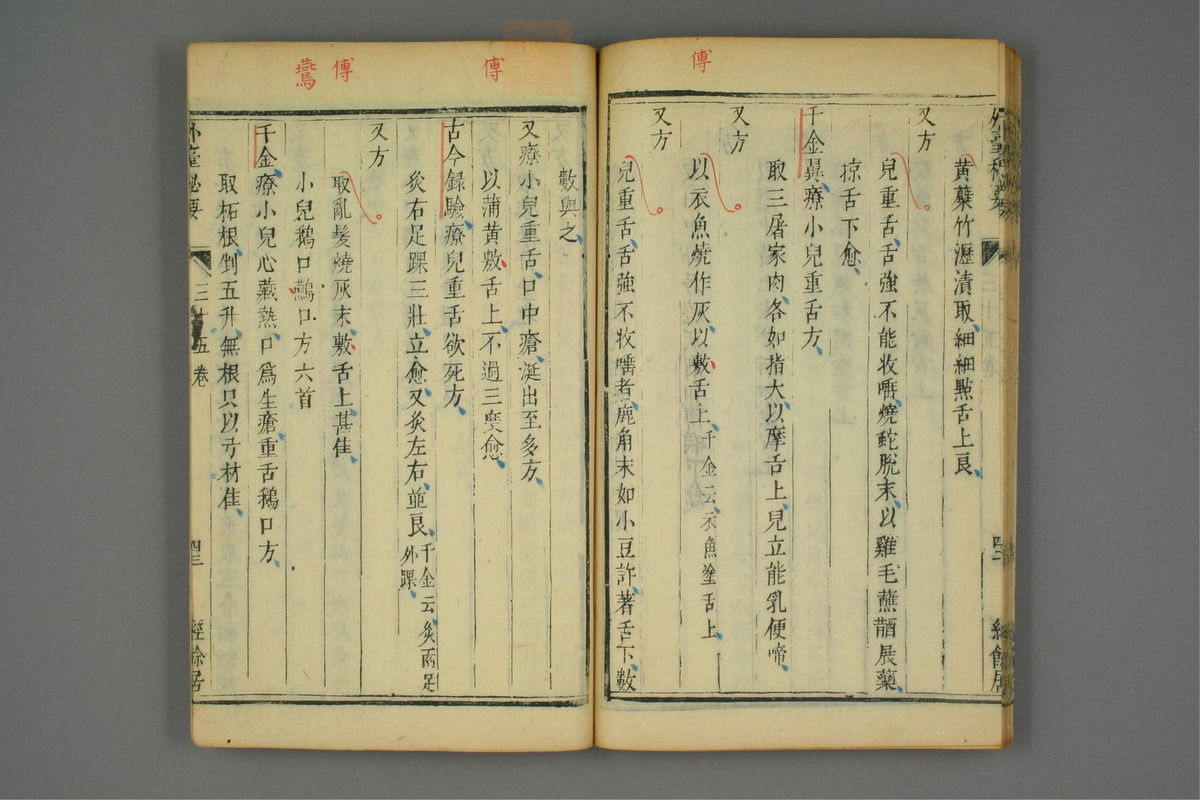 傅
外臺秘要
黃蘗竹瀝漬取細細點舌上良
又方
兒重舌舌強不能收唾燒蛇脫末以雞毛蘸醋展藥
掠舌下愈
千金翼療小兒重舌方
取三屠家肉各如指大以摩舌上兒立能乳便啼
又方
以衣魚燒作灰以敷舌上千金云衣魚塗舌上
又方
兒重舌舌強不收唾者鹿角末如小豆許著舌下數
傅
傅
鷰
數與之
又療小兒重舌口中瘡涎出至多方
以蒲黃敷舌上不過三度愈
古今録驗療兒重舌欲死方
灸右足踝三壯立愈又灸左右並良千金云灸兩足外踝
又方
取亂髮燒灰末敷舌上甚佳
小兒鵝口鷰口方六首
千金療小兒心藏熱口為生瘡重舌鵝口方
取柘根剉五升無根只以弓材佳
外臺秘要
三十五卷
四三
經餘居